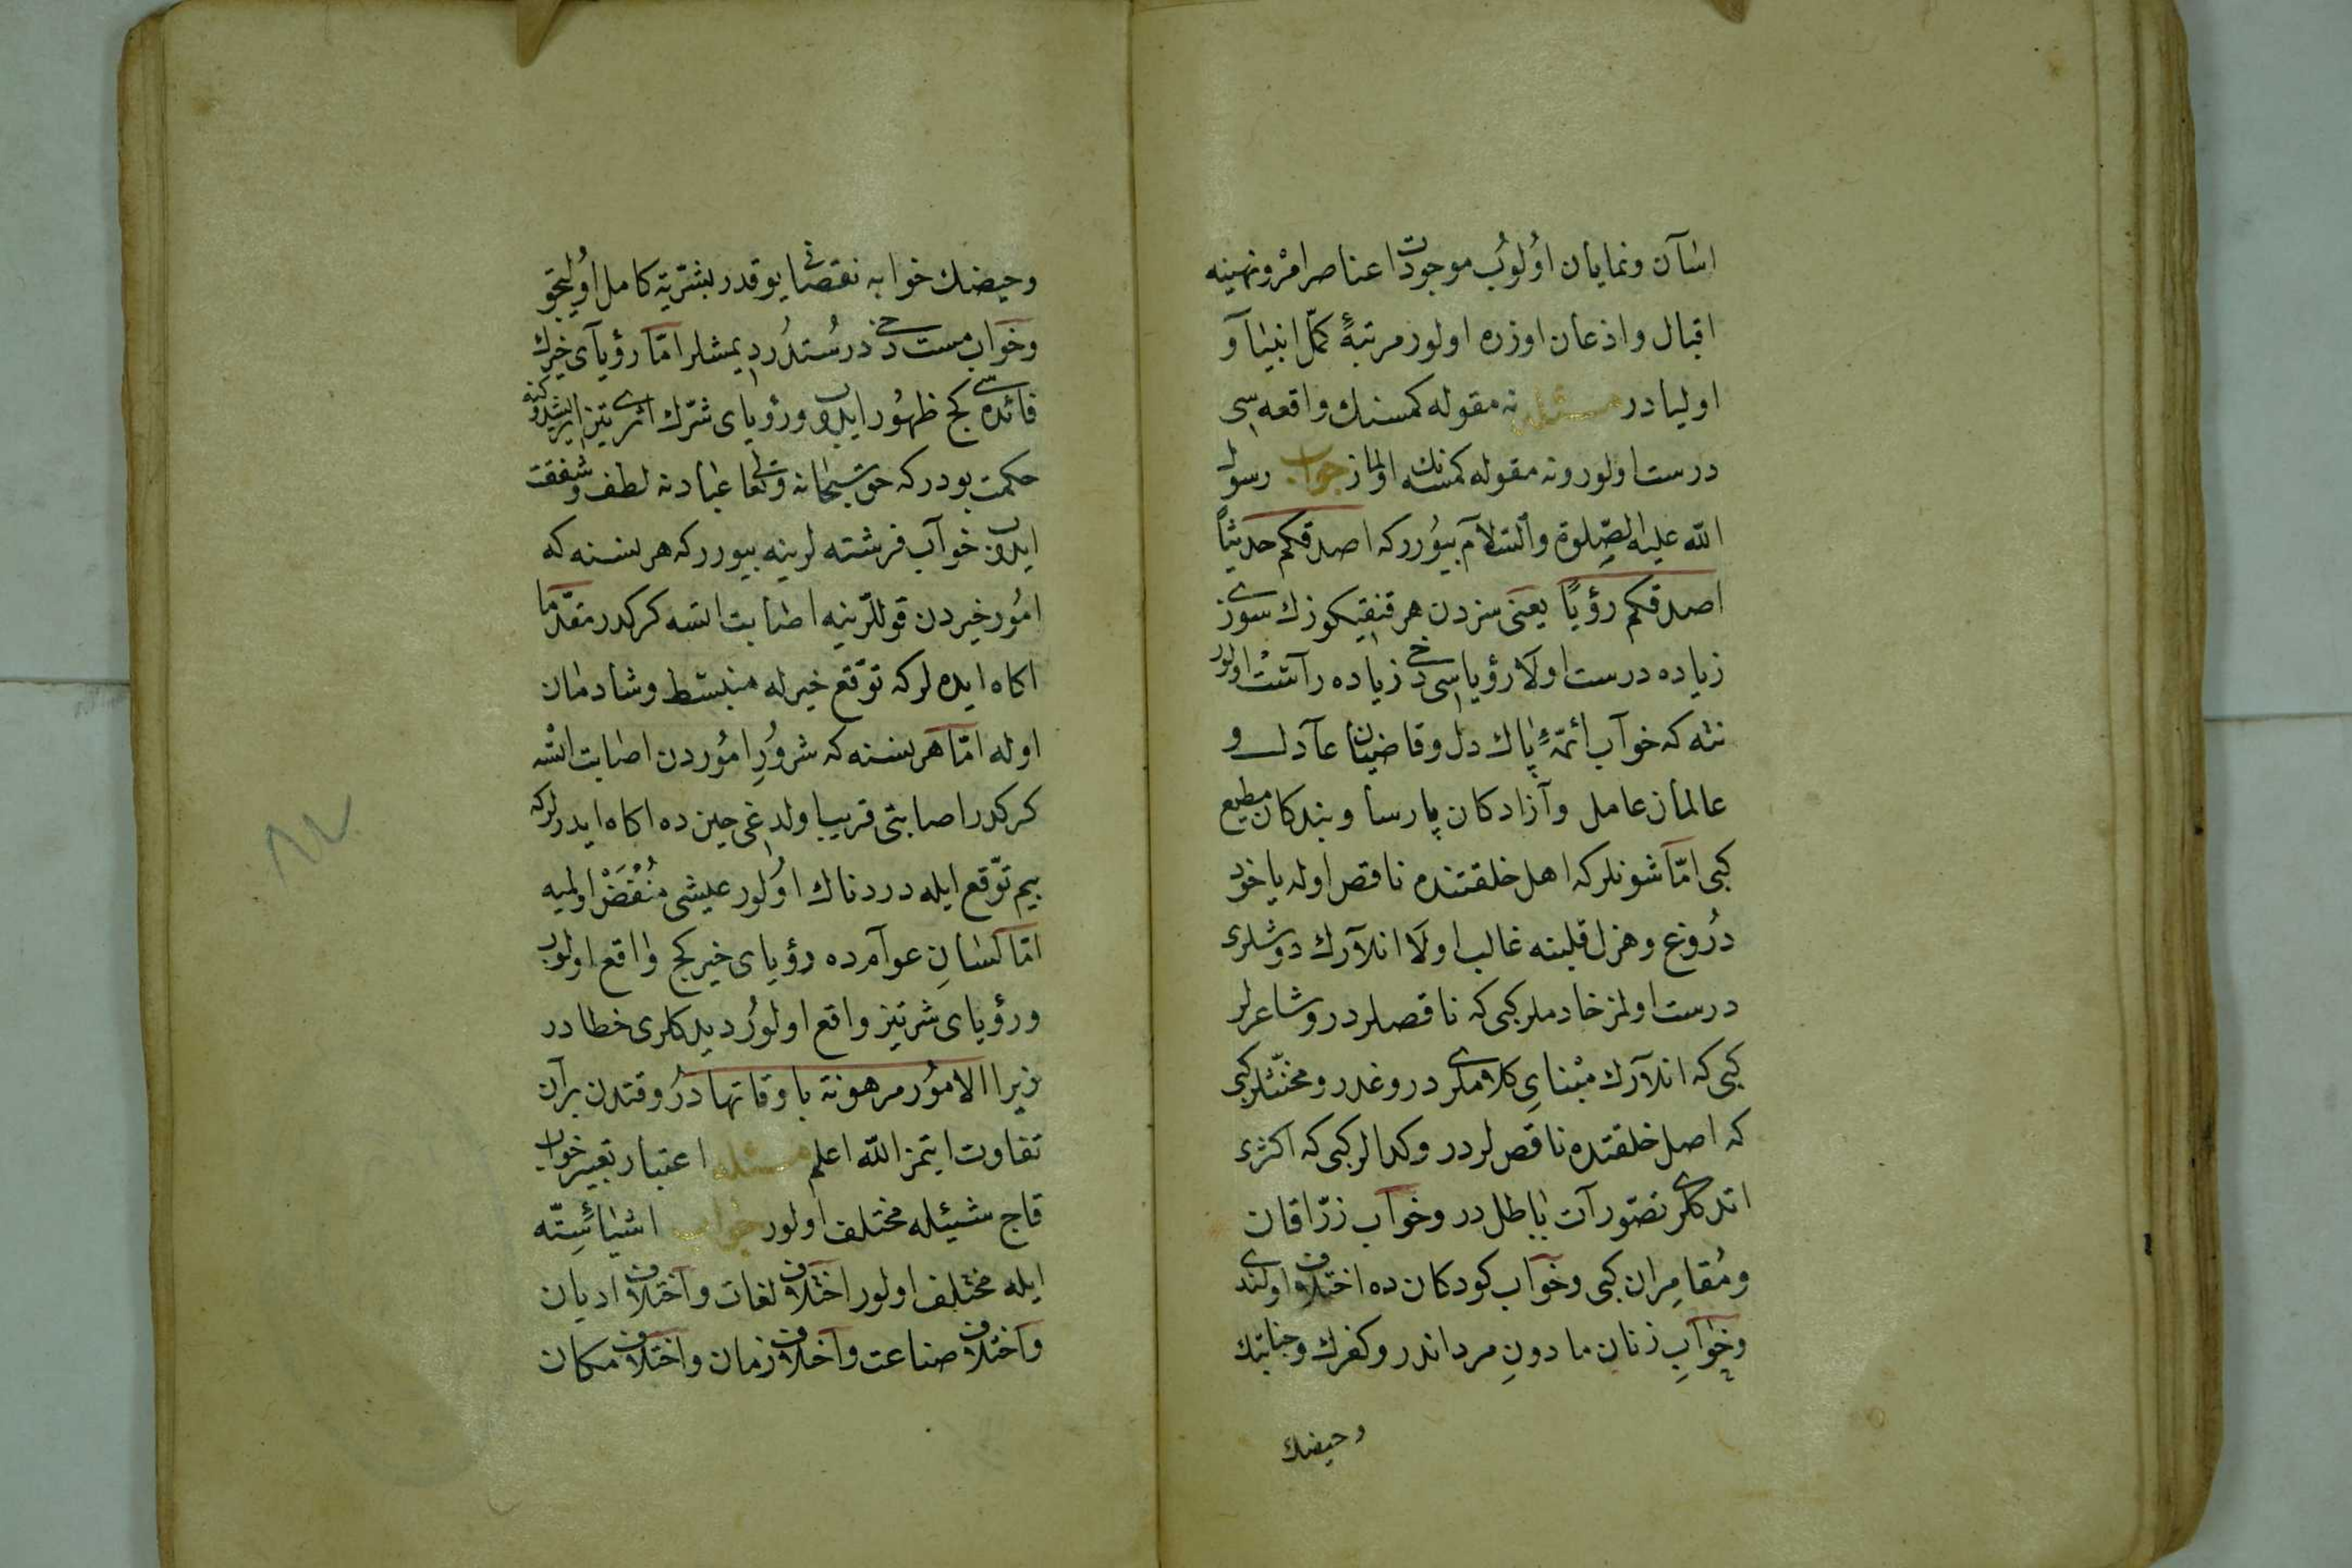 اسان ونمايان اولوب موجودات عناصر امر ونهينه
اقبال واذعان اوزره اولور مرتبهٔ كمّل انبيا و
اوليادر مسئله نه مقوله كمسنك واقعه سى
درست اولور ونه مقوله كمسنه نك اولماز جواب رسول
الله عليه الصلوة والسلام بيورر كه اصدقكم حديثا
اصدقكم رؤيا يعنى سزدن هر قنقيكوزك سوزى
زياده درست اولا رؤياسى دخى زياده راست اولور
نته كه خواب ائمهٔ پاك دل وقاضيان عادل و
عالمان عامل وآزادكان پارسا وبندكان مطيع
كبى امّا شونلر كه اهل خلقتنده ناقص اوله ياخود
دروغ وهزل قلبنه غالب اولا انلارك دوشلرى
درست اولمز خادملر كبى كه ناقصلردر وشاعرلر
كبى كه انلارك مبناى كلاملرى دروغدر ومخنّثلر كبى
كه اصل خلقتده ناقصلردر وكدالر كبى كه اكثرى
اتدكلرى تصورات باطلدر وخواب زرّاقان
ومقامران كبى وخواب كودكان ده اختلاف اولندى
وخواب زنان مادون مرداندر وكفرك وجنابتك
وحيضك
وحيضك خوابه نقصانى يوقدر بشريّة كامل اوليجق
وخواب مست دخى درستدر ديمشلر امّا رؤياى خيرك
فائده سى كج ظهور ايدوب ورؤياى شرّك اثرى تيز ايرشدوكنه
حكمت بودر كه حق سبحانه وتعالى عبادنه لطف وشفقت
ايدوب خواب فرشته لرينه بيورر كه هر نسنه كه
امور خيردن قوللرينه اصابت اتسه كركدر مقدّما
اكاه ايده لر كه توقّع خيرله منبسط وشادمان
اوله امّا هر نسنه كه شرور امور دن اصابت اتسه
كركدر اصابتى قريب اولدغى حين ده اكاه ايدرلر كه
بيم توقّع ايله دردناك اولور عيشى منغّص اولميه
امّا كسان عوامده رؤياى خير كج واقع اولوب
ورؤياى شر تيز واقع اولور ديدكلرى خطادر
زيرا الامور مرهونة باوقاتها در وقتدن بر آن
تفاوت ايتمز الله اعلم مسئله اعتبار تعبير خواب
قاج شيئله مختلف اولور جواب اشياء ستّه
ايله مختلف اولور اختلاف لغات واختلاف اديان
واختلاف صناعت واختلاف زمان واختلاف مكان